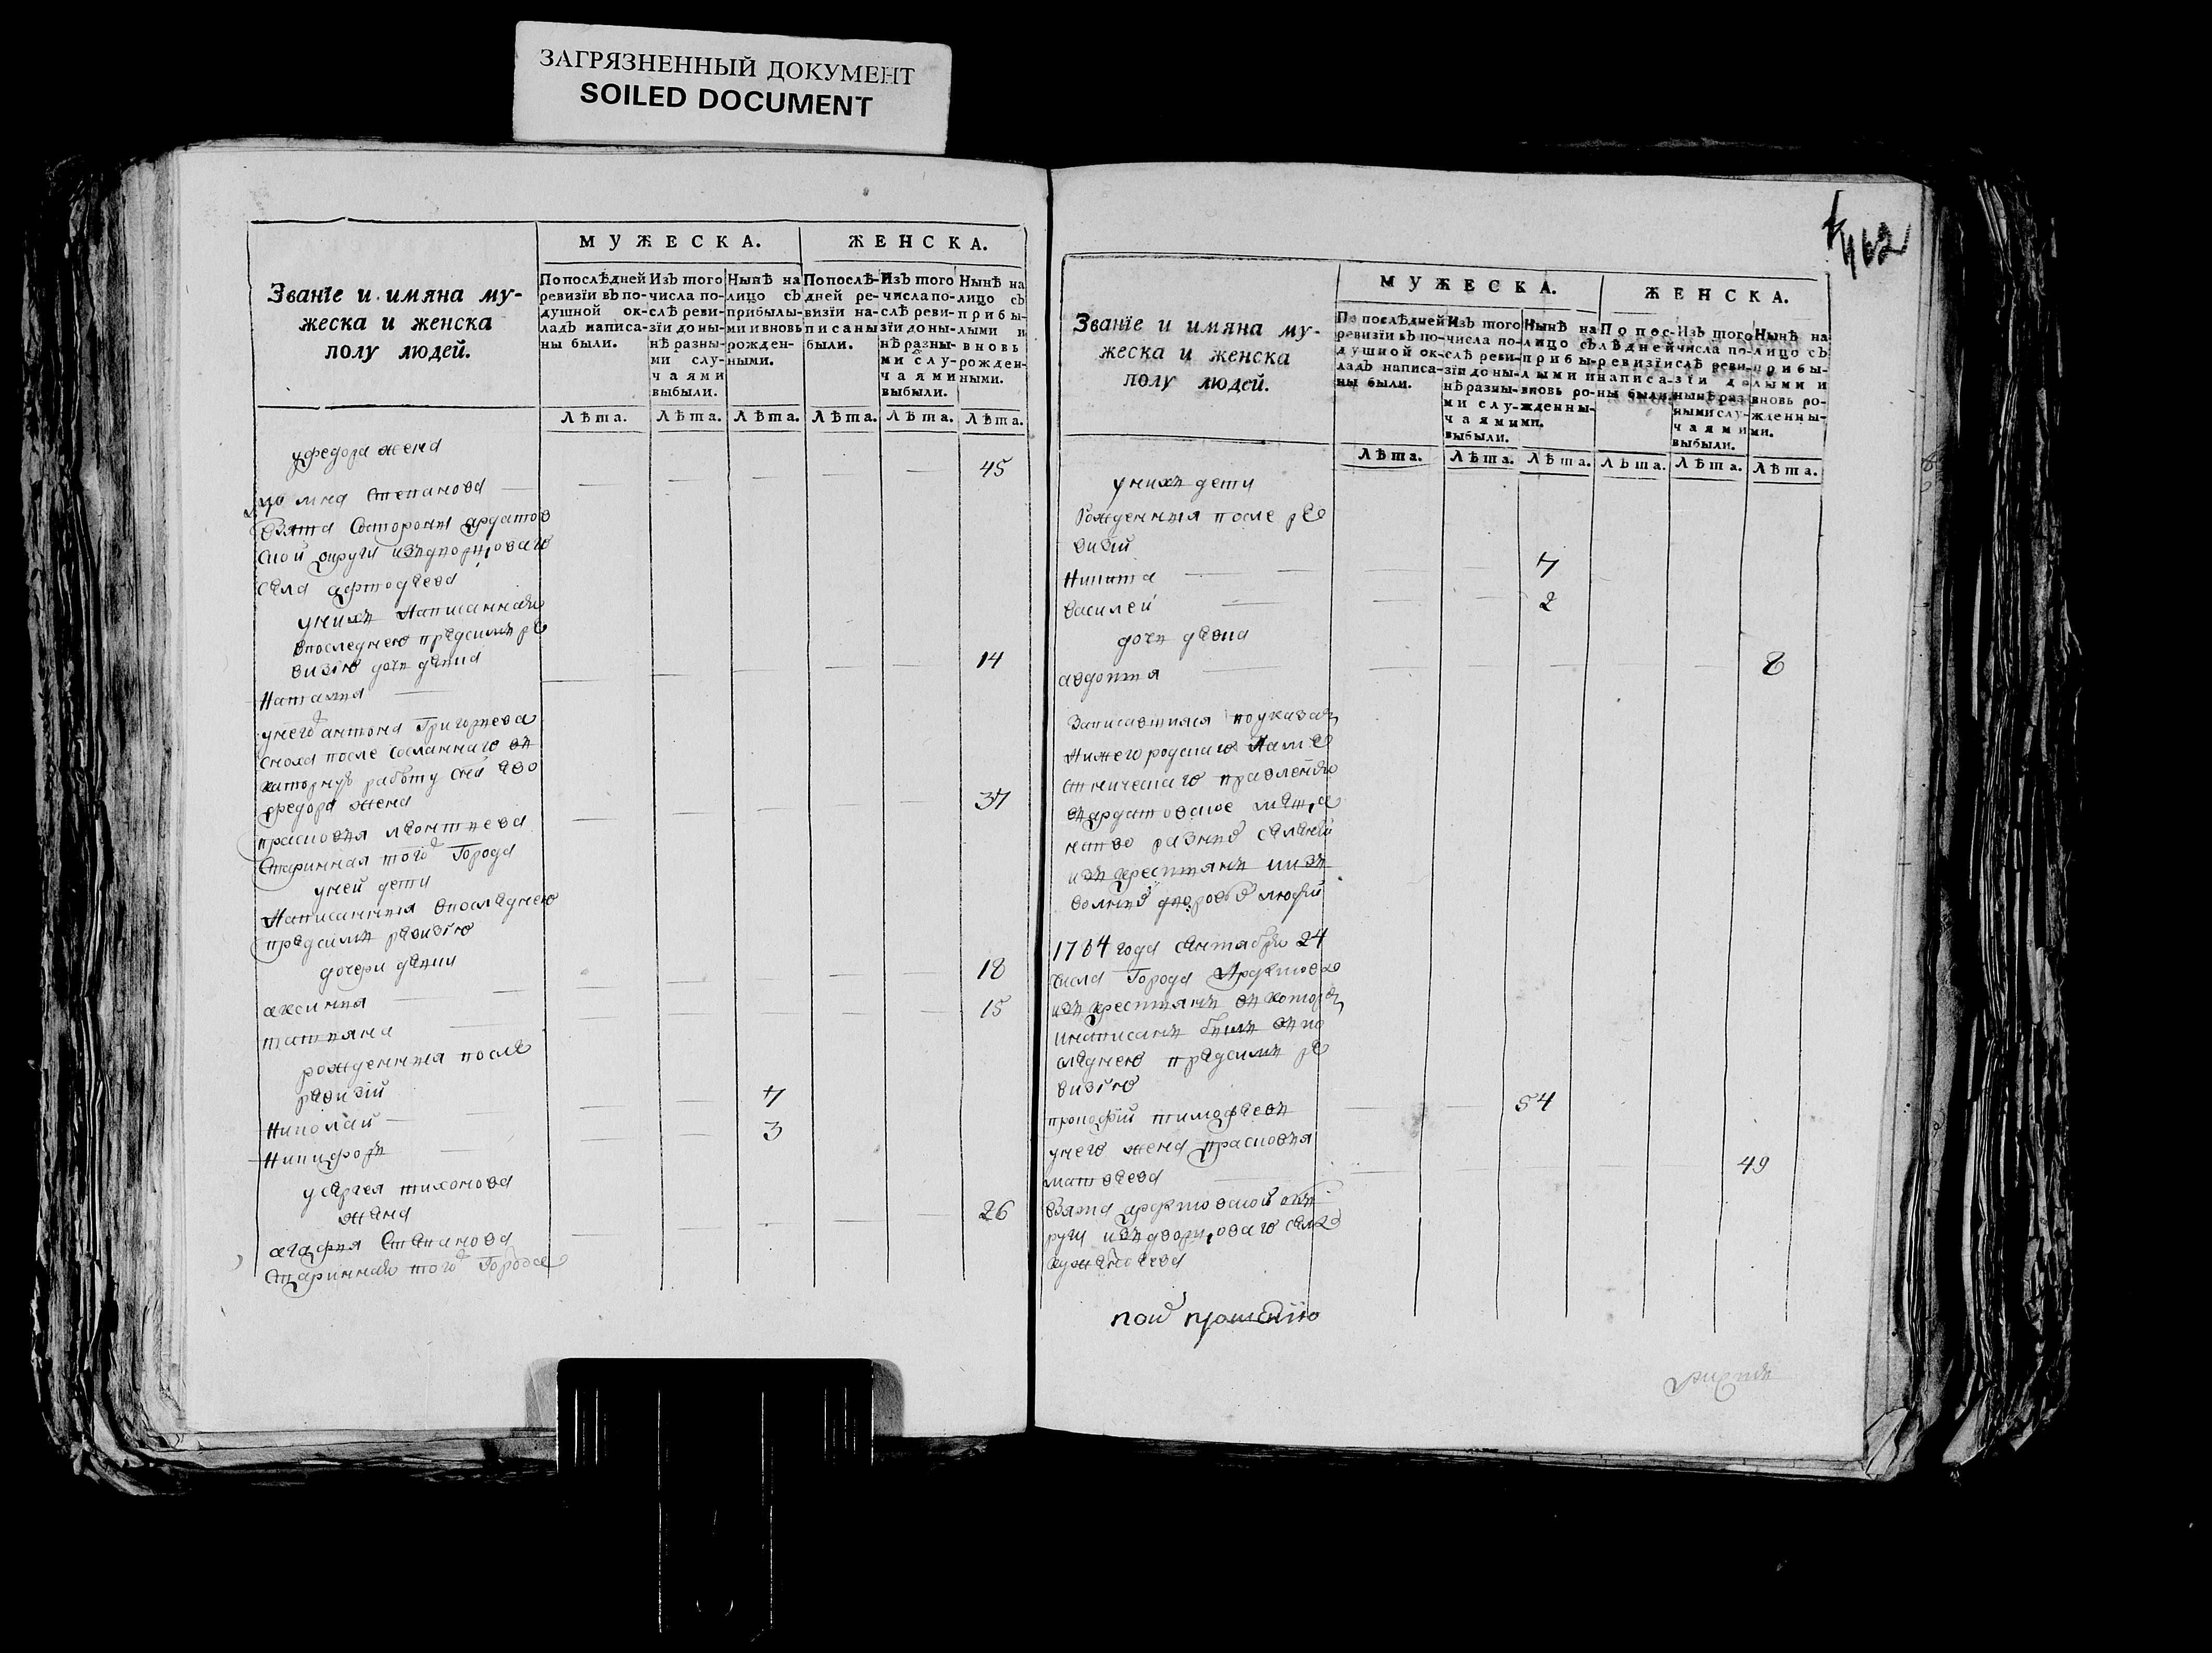 ЗАГРЯЗНЕННЫЙ ДОКУМЕНТ
SOILED DOCUMENT
Званїе и имяна му-
жеска и женска
полу людей.
МУЖЕСКА.
ЖЕНСКА.
По послѣдней ревизїи въ по-душной ок-ладъ написа-ны были.
Изъ того числа по-слѣ реви-зїи до ны-нѣ разны-ми слу-чаями выбыли.
Нынѣ на лицо съ прибылы-ми и вновь рожден-ными.
По послѣ-дней ре-визїи на-писаны были.
Изъ того числа по-слѣ реви-зїи до ны-нѣ разны-ми слу-чаями выбыли.
Нынѣ на лицо съ прибы-лыми и вновь рожден-ными.
Лѣта. Лѣта. Лѣта. Лѣта. Лѣта. Лѣта.
уфедора жена
степанова 45
взята состороны ардатов
ской округи
села
унихъ написанная
впоследнею предсимъ ре
визїю дочь девка
Наталья 14
унего антона Григорьева
сноха после сосланнаго въ
каторжную работу сна ево
федора жена
прасковья леонтьева 37
старинная того города
уней дети
Написанныя впоследнею
предсимъ ревизїю
дочери девки
аксинья 18
татьяна 15
рожденныя после
ревизїй
Николай 7
Никифоръ 3
усергея тихонова
жена
агафья степанова 26
старинная того города
462
Званїе и имяна му-
жеска и женска
полу людей.
МУЖЕСКА.
ЖЕНСКА.
По послѣдней ревизїи въ по-душной ок-ладъ написа-ны были.
Изъ того числа по-слѣ реви-зїи до ны-нѣ разны-ми слу-чаями выбыли.
Нынѣ на лицо съ прибы-лыми и вновь ро-жденны-ми.
По пос-лѣдней ревизїи написа-ны были.
Изъ того числа по-слѣ реви-зїи до нынѣ раз-ными слу-чаями выбыли.
Нынѣ на лицо съ прибы-лыми и вновь ро-жденны-ми.
Лѣта. Лѣта. Лѣта. Лѣта. Лѣта. Лѣта.
унихъ дети
Рожденныя после ре
визїй
Никита 7
василей 2
дочь девка
авдотья 8
Записавшияся поуказа
Нижегородскаго наме
стническаго правления
въардатовское меща
нство разныхъ селений
изъ крестьянъ иизъ
волныхъ дворовыхъ людей
1784 года сентября 24
числа города Ардатова
изъ крестьянъ
инаписанъ былъ въпо
следнею предсимъ ре
визїю
прокофий тимофеевъ 54
унего жена прасковья
матвеева 49
взята ардатовской ок
руги издворцоваго села